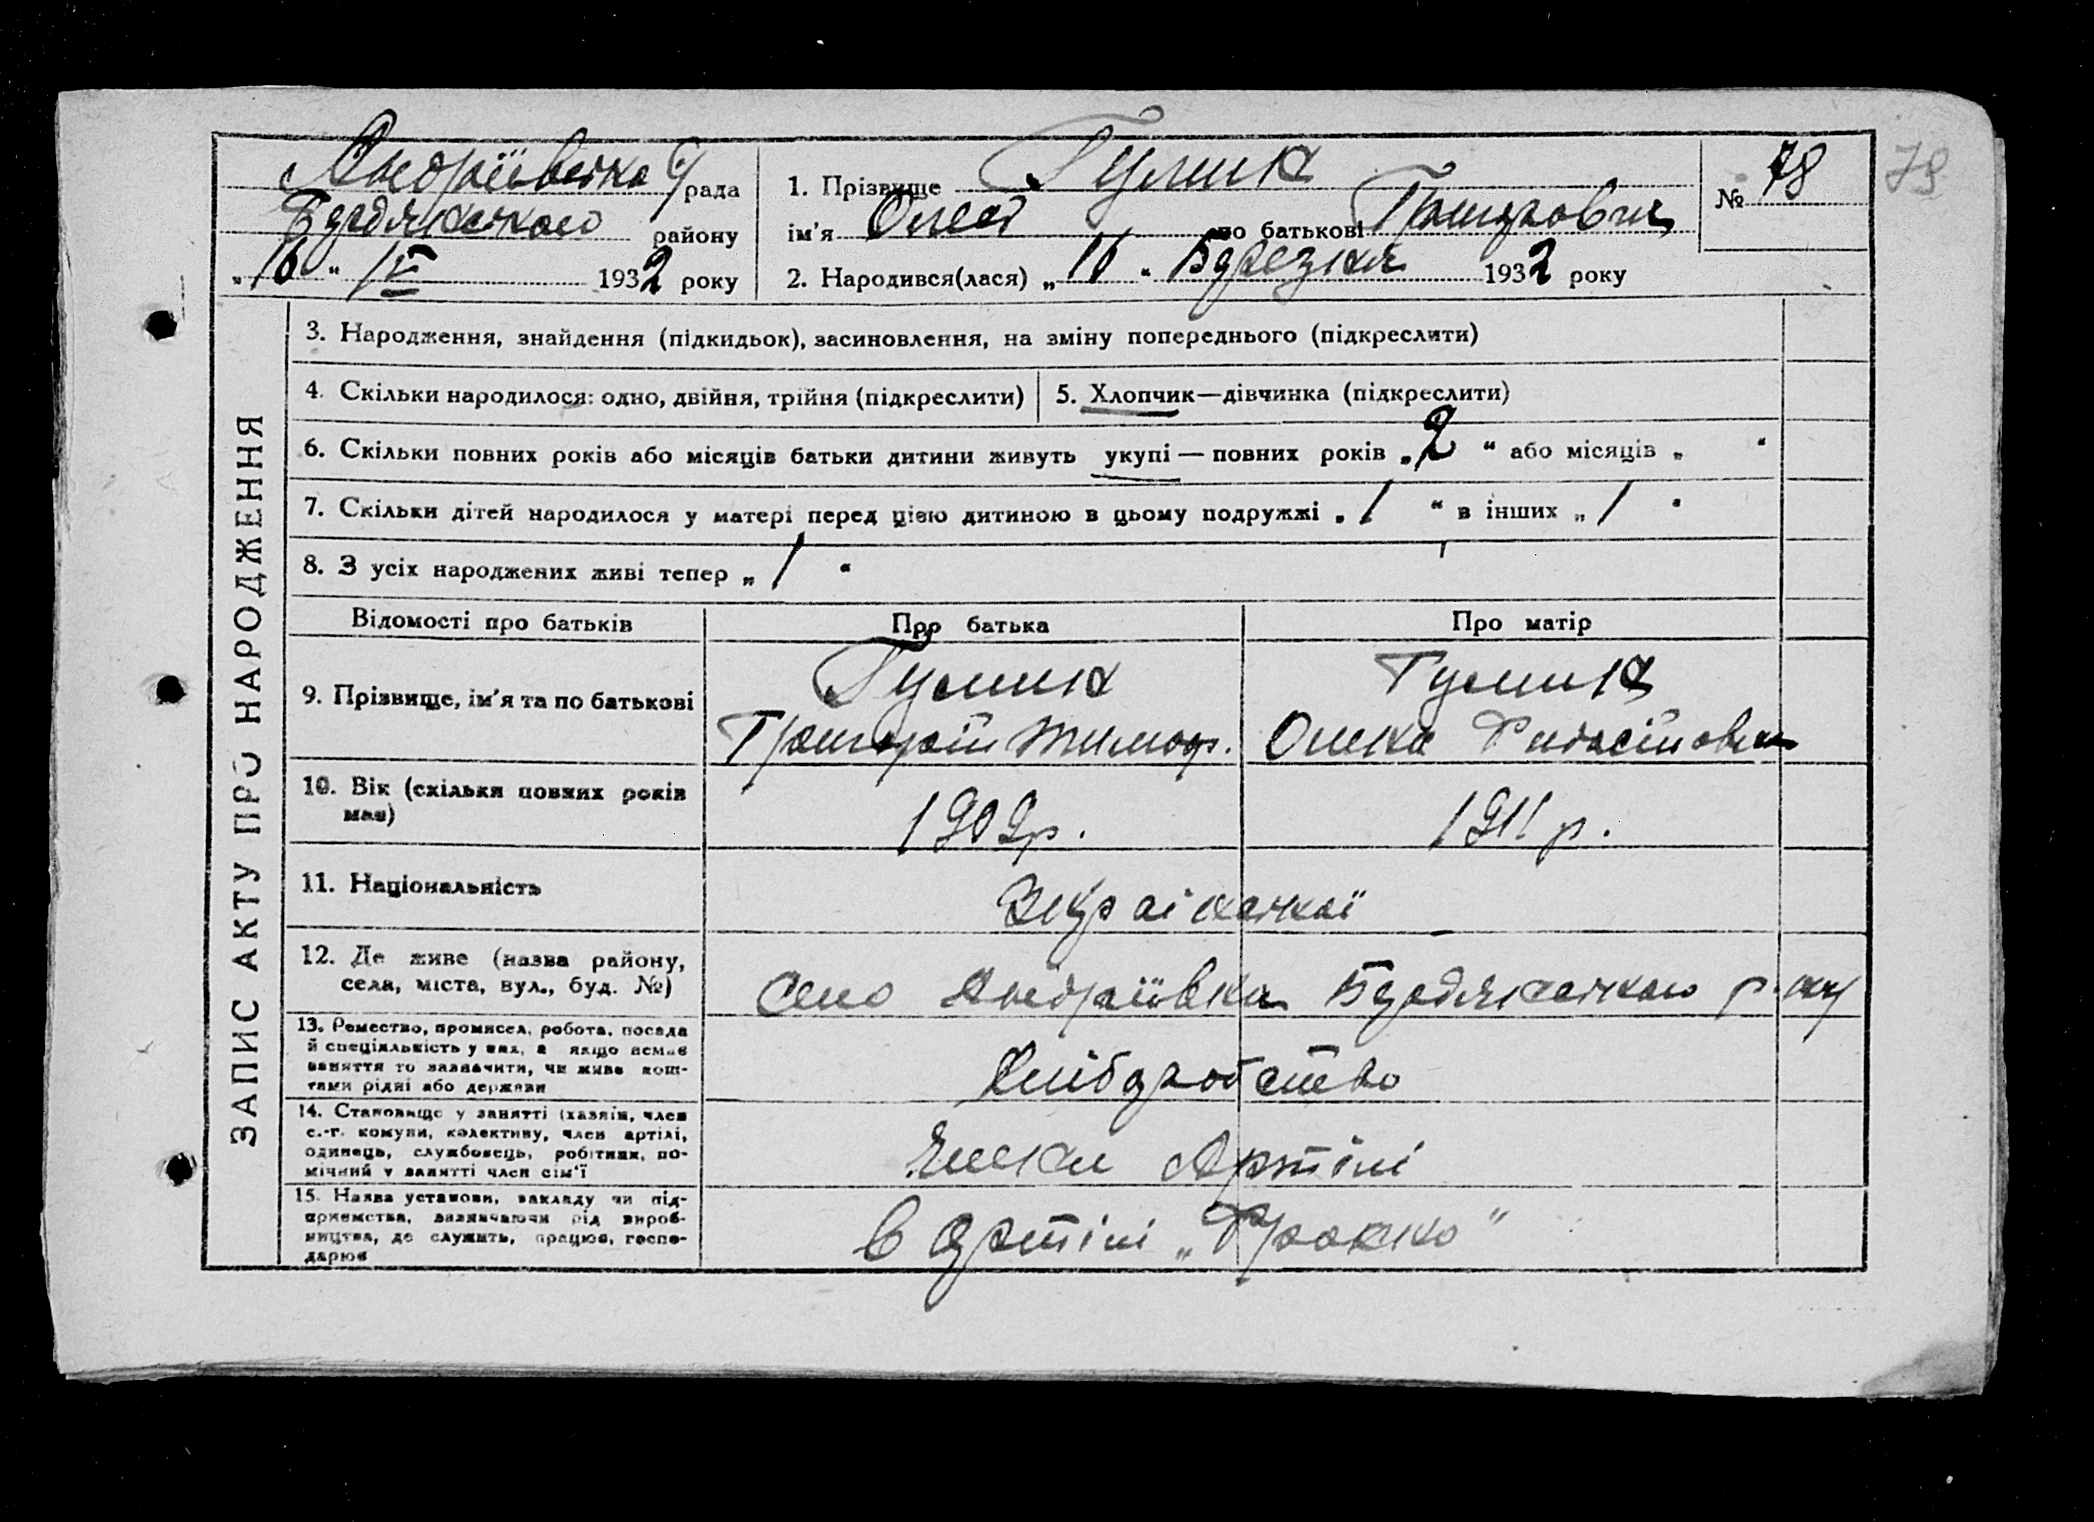 Андріївська с/рада
Бердянського району
„16“ IV 1932 року
1. Прізвище Гулик № 78 79
ім'я Олег по батькові Григорович
2. Народився(лася) „16“ Березня 1932 року
ЗАПИС АКТУ ПРО НАРОДЖЕННЯ
3. Народження, знайдення (підкидьок), засиновлення, на зміну попереднього (підкреслити)
4. Скільки народилося: одно, двійня, трійня (підкреслити)
5. Хлопчик—дівчинка (підкреслити)
6. Скільки повних років або місяців батьки дитини живуть укупі — повних років „2“ або місяців „ “
7. Скільки дітей народилося у матері перед цією дитиною в цьому подружжі „1“ в інших „1“
8. З усіх народжених живі тепер „1“
Відомості про батьків Про батька Про матір
9. Прізвище, ім'я та по батькові
Гулик Гулик
Григорій Тимоф. Олена
10. Вік (скільки повних років має)
1909р. 1911 р.
11. Національність
Української
12. Де живе (назва району,
села, міста, вул., буд. №)
Село Андріївка Бердянського р-ну
13. Ремество, промисел, робота, посада
й спеціяльність у них, а якщо немає
заняття то зазначити, чи живе кош-
тами рідні або держави
Хліборобство
14. Становище у занятті (хазяїн, член
с.-г. комуни, колективу, член артілі,
одинець, службовець, робітник, по-
мічний у занятті член сім'ї
Члени Артілі
15. Назва установи, закладу чи під-
приємства, зазначаючи рід вироб-
ництва, де служить, працює, госпо-
дарює
в артілі „Франко“